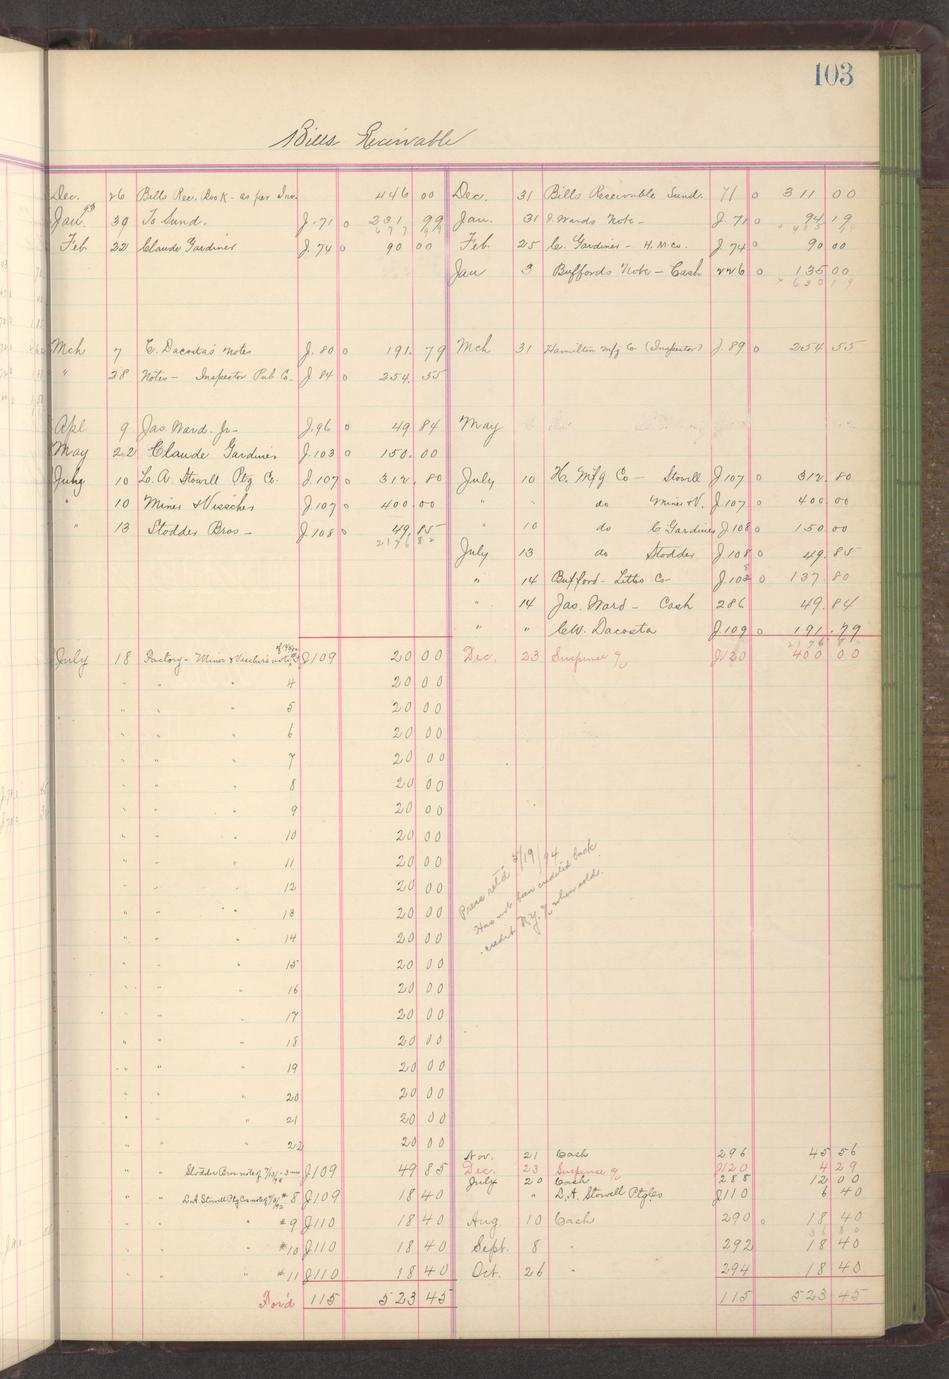 103
Bills Receivable
Dec. 26 Bills Rec. Book - as per Inv. 446 00 Dec. 31 Bills Receivable Sund. 71 0 311 00
Jan 30 To Sund. J. 71 0 231 99 Jan. 31 J. Wards Note - J. 71 0 94 19
Feb 22 Claude Gardiner J. 74 0 90 00 Feb 25 C. Gardiner - H. M. Co. J. 74 0 90 00
Jan 3 Buffords Note - Cash 226 0 135 00
630 19
Mch 7 C. Dacosta's Notes J. 80 0 191. 79 Mch 31 Hamilton Mfg Co (Inspector) J. 89 0 254 55
" 28 Notes - Inspector Pub Co. J 84 0 254. 55
Apl 9 Jas Ward. Jr - J. 96 0 49 84 May
May 22 Claude Gardiner J. 103 0 150. 00
June 10 L. A. Stowell Ptg Co. J. 107 0 312. 80 July 10 H. Mfg Co - Stowell J. 107 0 312. 80
" 10 Miner & Visscher J. 107 0 400. 00 " " do Miner & V. J. 107 0 400 00
" 13 Stodder Bros - J. 108 0 49. 85 " 10 do C Gardiner J 108 0 150 00
2176 82 July 13 do Stodder J. 108 0 49. 85
" 14 Bufford - Litho Co - J. 108 0 137 80
" 14 Jas. Ward - Cash 286 49. 84
" " C. W. Dacosta J. 109 0 191. 79
July 18 Factory - Miner & Visscher's note J109 20 00 Dec. 23 Suspense a/c J120 400 00
" " " 4 20 00
" " " 5 20 00
" " " 6 20 00
" " " 7 20 00
" " " 8 20 00
" " " 9 20 00
" " " 10 20 00
" " " 11 20 00
" " " 12 20 00
" " " 13 20 00
" " " 14 20 00
" " " 15 20 00
" " " 16 20 00
" " " 17 20 00
" " " 18 20 00
" " " 19 20 00
" " " 20 20 00
" " " 21 20 00
" " " 22 20 00
Press retd 2/19/94
Has not been credited back
credit N.Y. % when sold.
Nov. 21 Cash 296 45 56
" " Stodder Bros note of J109 49 85 Dec. 23 Suspense a/c J120 4 29
July 20 Cash 288 12 00
" " L. A. Stowell Ptg Cos note of #8 J109 18 40 " L. A. Stowell Ptg Co J110 6 40
" " " #9 J110 18 40 Aug. 10 Cash 290 0 18 40
" " " #10 J110 18 40 Sept. 8 " 292 18 40
" " " #11 J110 18 40 Oct. 26 " 294 18 40
For'd 115 523 45 115 523 45